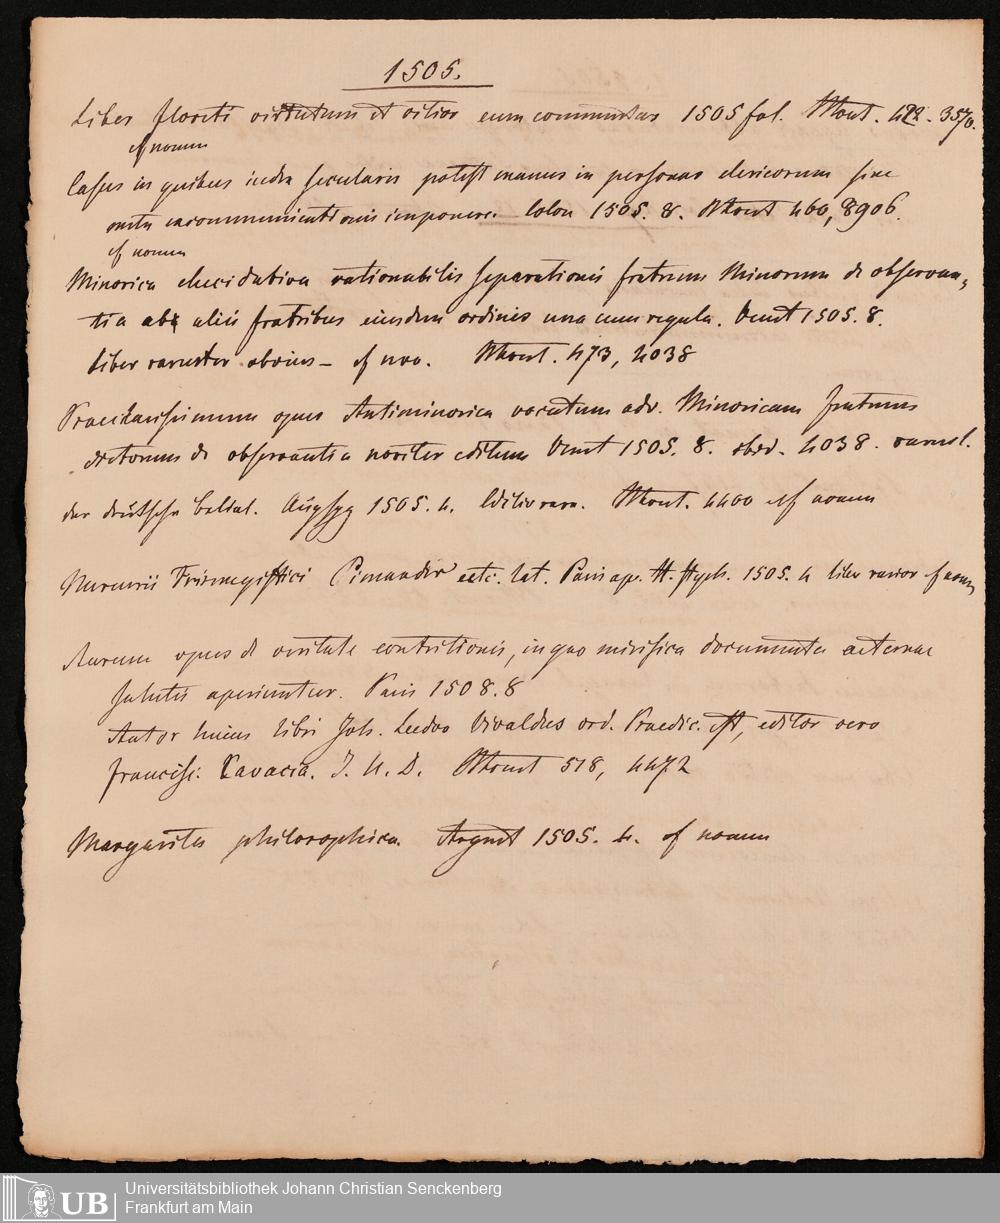 1505.
Liber Floreti virtutum et vitior cum commentar 1505 fol. Mout. 472. 3570.
cf nomen
Casus in quibus iudex secularis potest manus in personas clericorum sine
metu excommunicationis imponere. Colon 1505. 8. Mout 460, 8906.
cf nomen
Minorica elucidativa rationabilis separationis fratrum Minorum de observan-
tia ab aliis fratribus eiusdem ordinis una cum regula. Venet 1505. 8.
Liber rarenter obvius – cf nov. Mout. 473, 4038
Praeclarissimum opus Antiminorica vocatum adv. Minoricam fratrum
dictorum de observantia noviter editum Venet 1505. 8. ibid. 4038.
der deutsche Belial. Augspg 1505. 4. Editio rara. Mout. 4400 cf nomen
Mercurii Trismegistici Pimander etc. lat. Paris ap. H. Steph. 1505. 4 liber rarior cf nomen
Aureum opus de veritate contritionis, in quo mirifica documenta aeternae
salutis aperiuntur. Paris 1508. 8
Autor huius libri Joh. Ludov Vivaldus ord. Praedic. est, editor vero
Francisc. Cavacia. J. U. D. Mout 518, 4472
Margarita philosophica. Argent 1505. 4. cf nomen
UB
Universitätsbibliothek Johann Christian Senckenberg
Frankfurt am Main